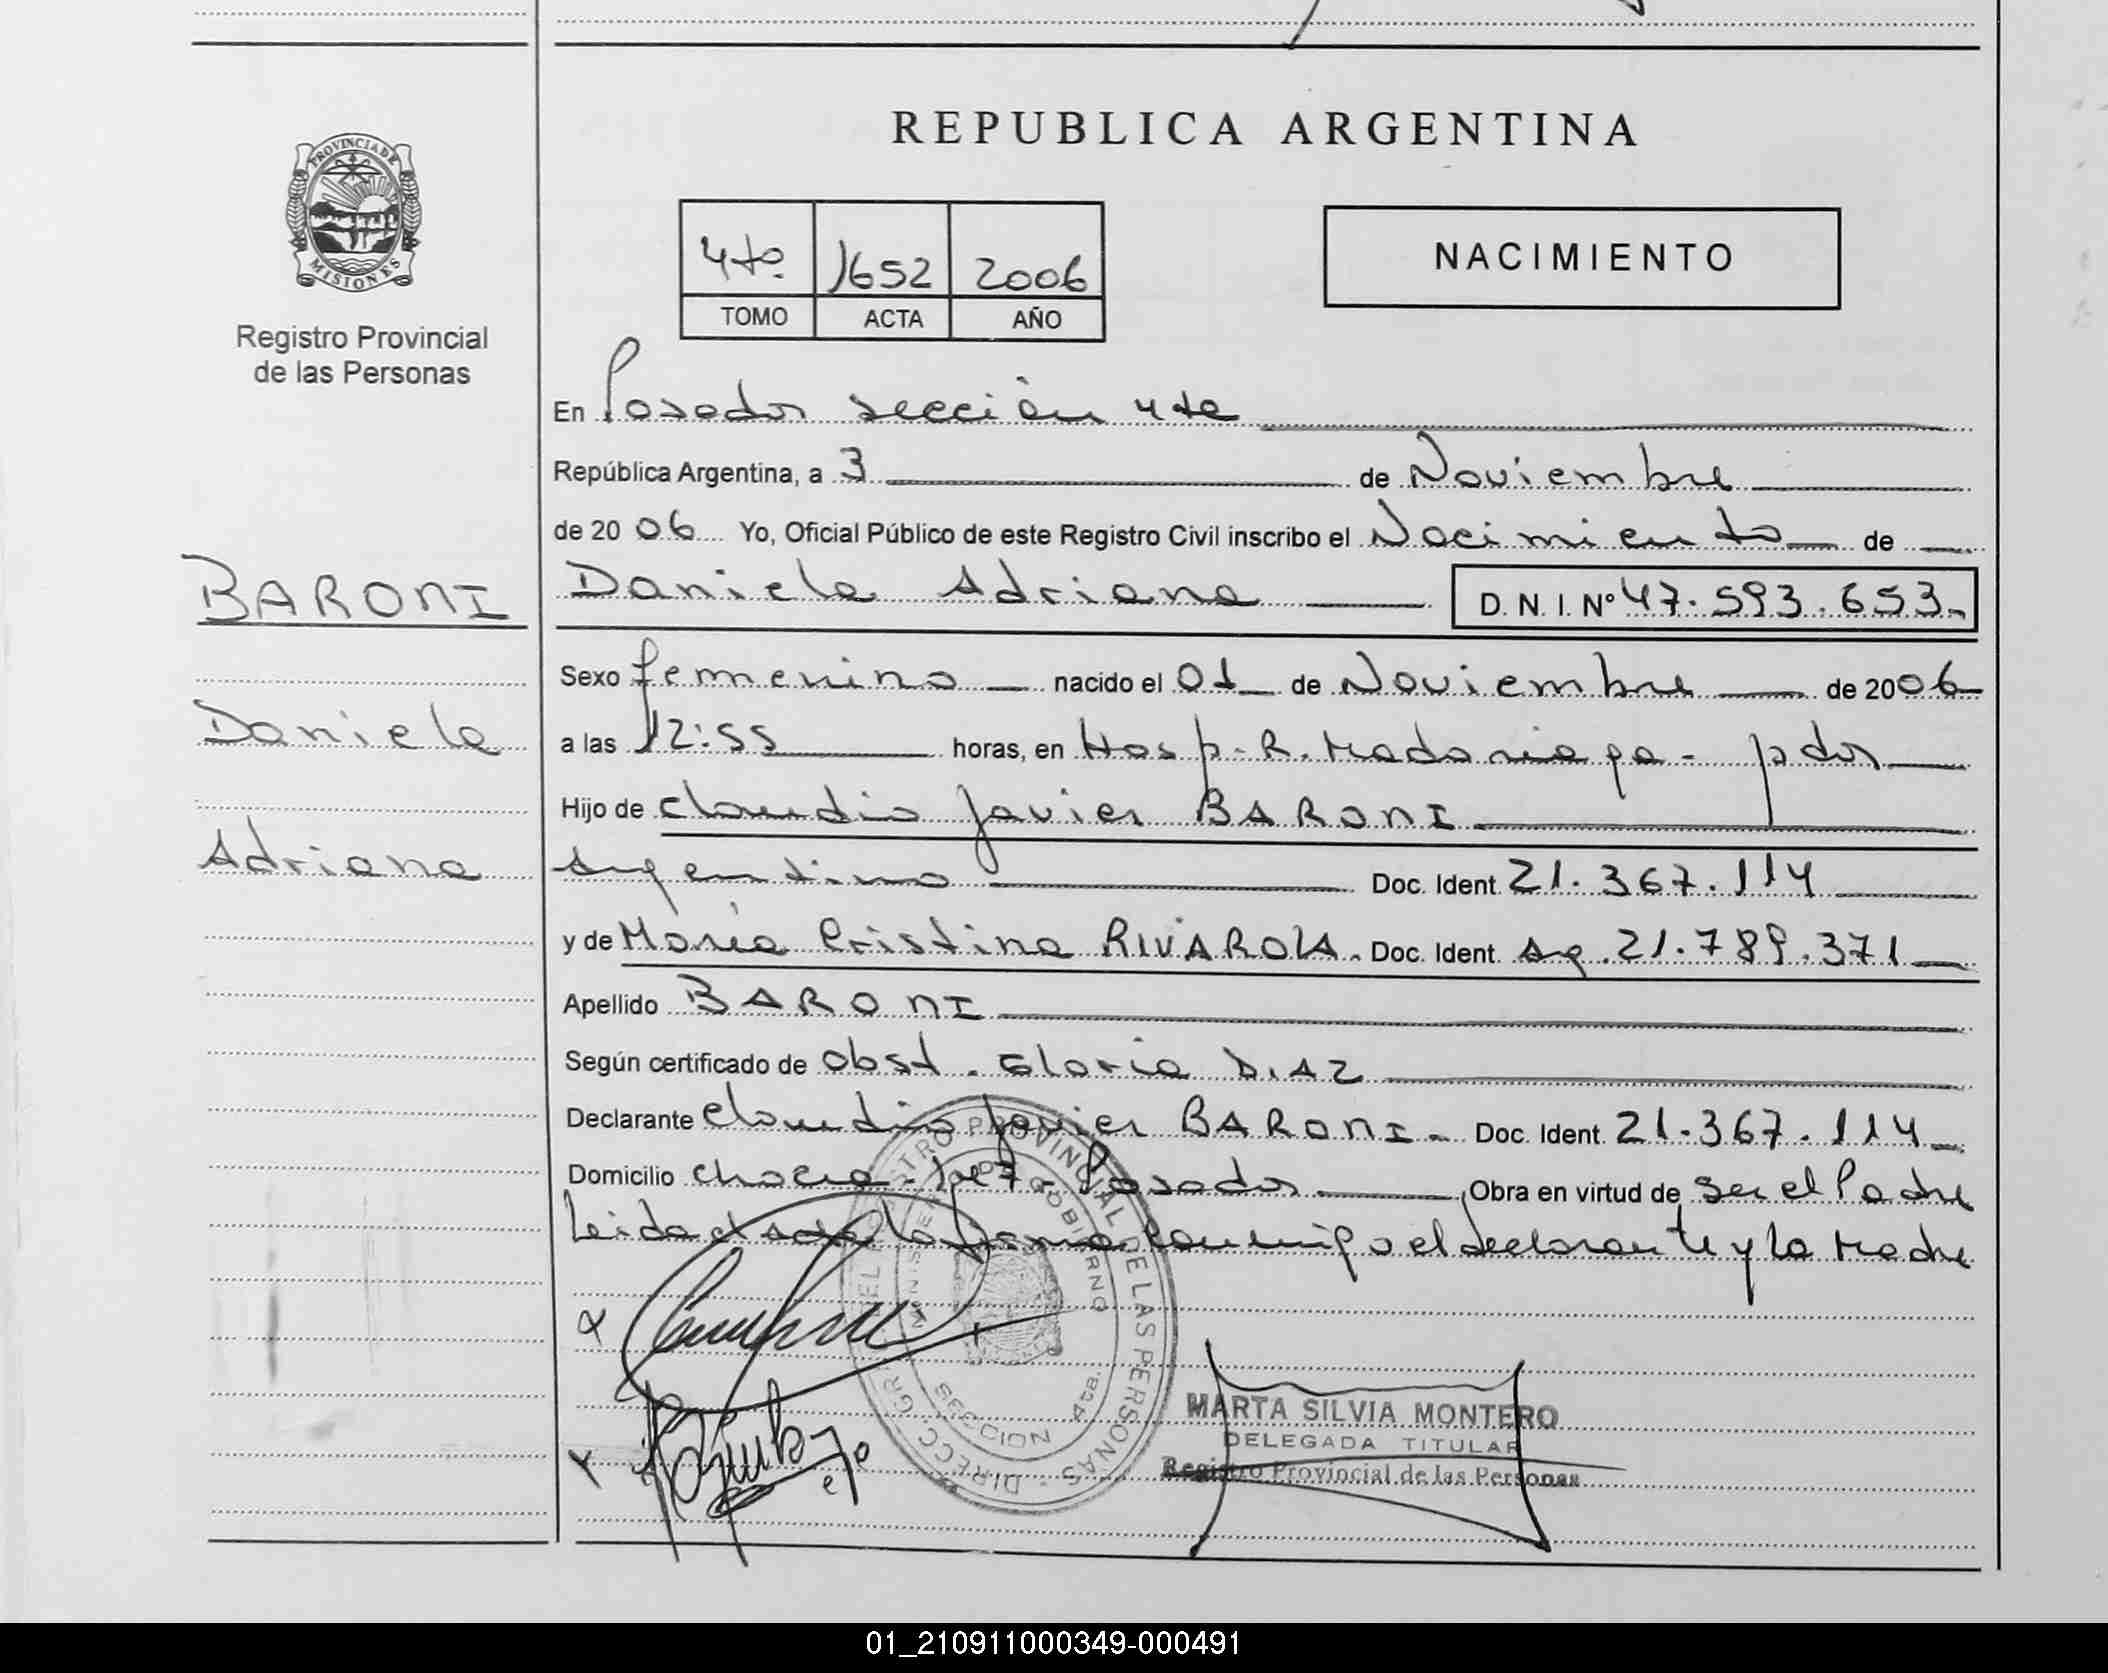 REPUBLICA ARGENTINA
PROVINCIA DE
MISIONES
Registro Provincial
de las Personas
4to 1652 2006
TOMO ACTA AÑO
NACIMIENTO
En Posadas sección 4ta
República Argentina, a 3 de Noviembre
de 2006 Yo, Oficial Público de este Registro Civil inscribo el Nacimiento de
BARONI
Daniela Adriana D. N. I. Nº 47.593.653
Sexo femenino nacido el 01 de Noviembre de 2006
Daniela
a las 12:55 horas, en Hosp. R. Madariaga - pdas
Hijo de Claudio Javier BARONI
Adriana
Argentino Doc. Ident. 21.367.114
y de María Cristina RIVAROLA. Doc. Ident. Arg. 21.789.371
Apellido BARONI
Según certificado de Obst. Gloria DIAZ
Declarante Claudio Javier BARONI - Doc. Ident. 21.367.114
Domicilio chacra 147 - Posadas Obra en virtud de Ser el Padre
Leida el acta la firma conmigo el declarante y la Madre
DIRECC. GRAL. DEL REGISTRO PROVINCIAL DE LAS PERSONAS
MINISTERIO DE GOBIERNO
SECCION 4ta.
MARTA SILVIA MONTERO
DELEGADA TITULAR
Registro Provincial de las Personas
01_210911000349-000491